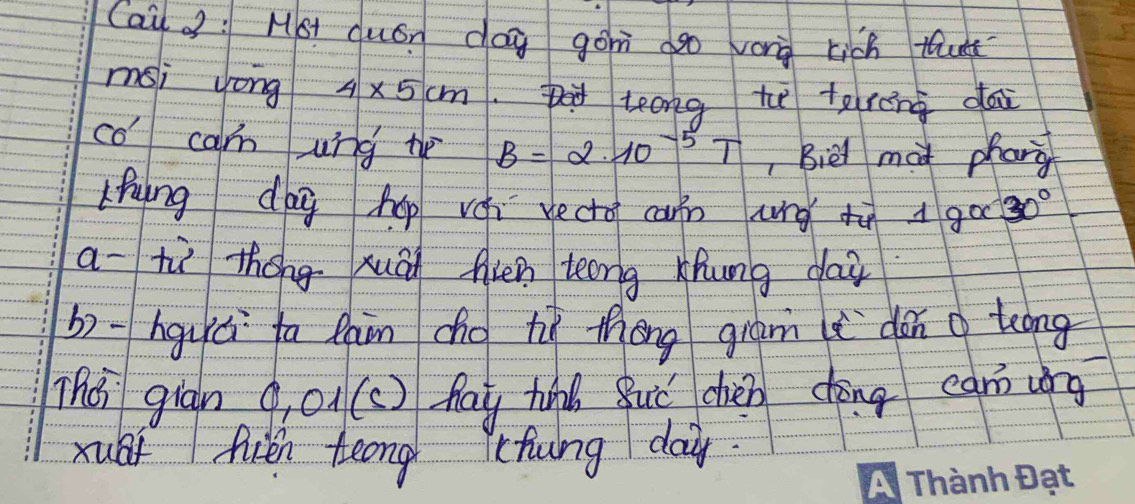 Câu 2: Một cuộn dây gồm 20 vòng kích thước
mỗi vòng 4x5 cm. Đặt trong từ trường đều
có cảm ứng từ B = 2.10⁻⁵ T, Biết mặt phẳng
khung dây hợp với vectơ cảm ứng từ 1 góc 30°
a- từ thông xuất hiện trong khung dây
b) - người ta làm cho từ thông giảm về đến 0 trong
Thời gian 0,01(s) hãy tính suất điện động cảm ứng
xuất hiện trong khung dây.
A Thành Đạt